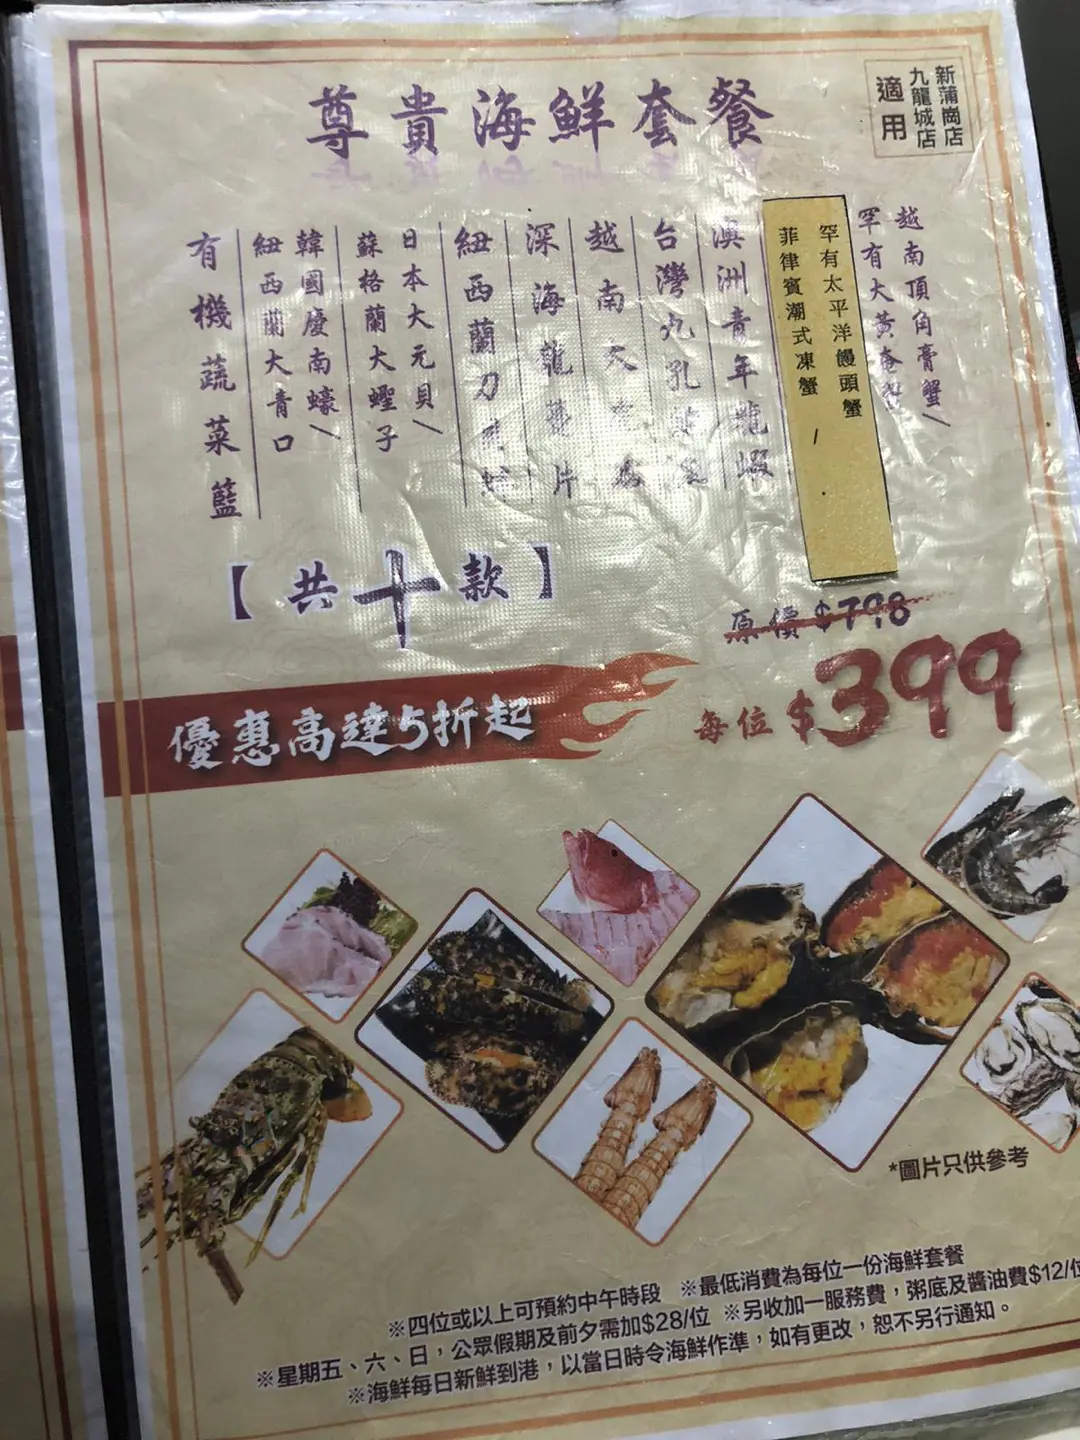 尊貴海鮮套餐
新蒲崗店
九龍城店
適用
越南頂角膏蟹/
罕有大黃奄蟹
罕有太平洋饅頭蟹
菲律賓潮式凍蟹 /
澳洲青年龍蝦
台灣九孔
越南大
深海龍躉片
紐西蘭刀
日本大元貝/
蘇格蘭大蟶子
韓國慶南蠔/
紐西蘭大青口
有機蔬菜籃
【共十款】
原價$798
每位$399
優惠高達5折起
*圖片只供參考
※四位或以上可預約中午時段 ※最低消費為每位一份海鮮套餐
※星期五、六、日,公眾假期及前夕需加$28/位 ※另收加一服務費,粥底及醬油費$12/位
※海鮮每日新鮮到港,以當日時令海鮮作準,如有更改,恕不另行通知。